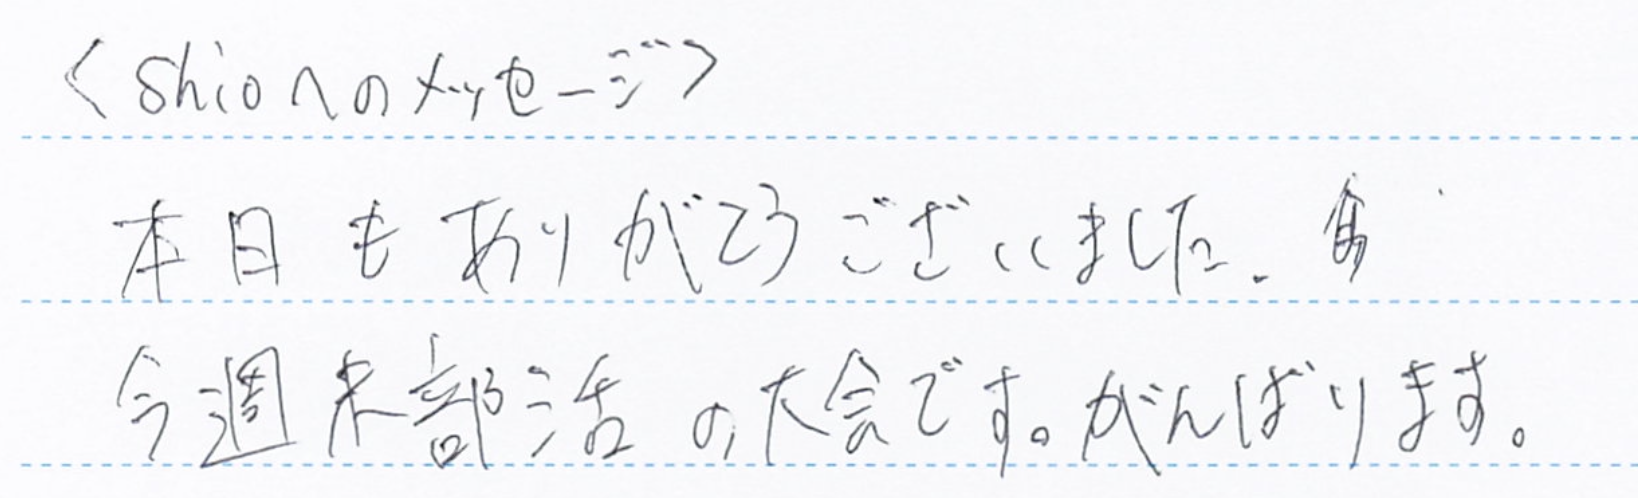 <Shioへのメッセージ>
本日もありがとうございました.
今週末部活の大会です。がんばります。